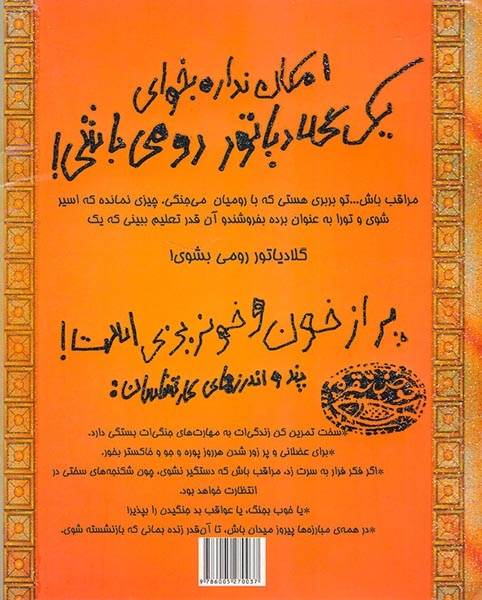 امکان نداره بخوای
یک گلادیاتور رومی باشی!
مراقب باش...تو بربری هستی که با رومیان می‌جنگی. چیزی نمانده که اسیر
شوی و تو‌را به عنوان برده بفروشندو آن قدر تعلیم ببینی که یک
گلادیاتور رومی بشوی!
پر از خون و خونریزی است!
پند و اندرزهای کارشناسان:
*سخت تمرین کن زندگی‌ات به مهارت‌های جنگی‌ات بستگی دارد.
*برای عضلانی و پر زور شدن هرروز پوره و جو و خاکستر بخور.
*اگر فکر فرار به سرت زد، مراقب باش که دستگیر نشوی، چون شکنجه‌های سختی در
انتظارت خواهد بود.
*یا خوب بجنگ، یا عواقب بد جنگیدن را بپذیر!
*در همه‌ی مبارزه‌ها پیروز میدان باش، تا آن‌قدر زنده بمانی که بازنشسته شوی.
9 786005 270037